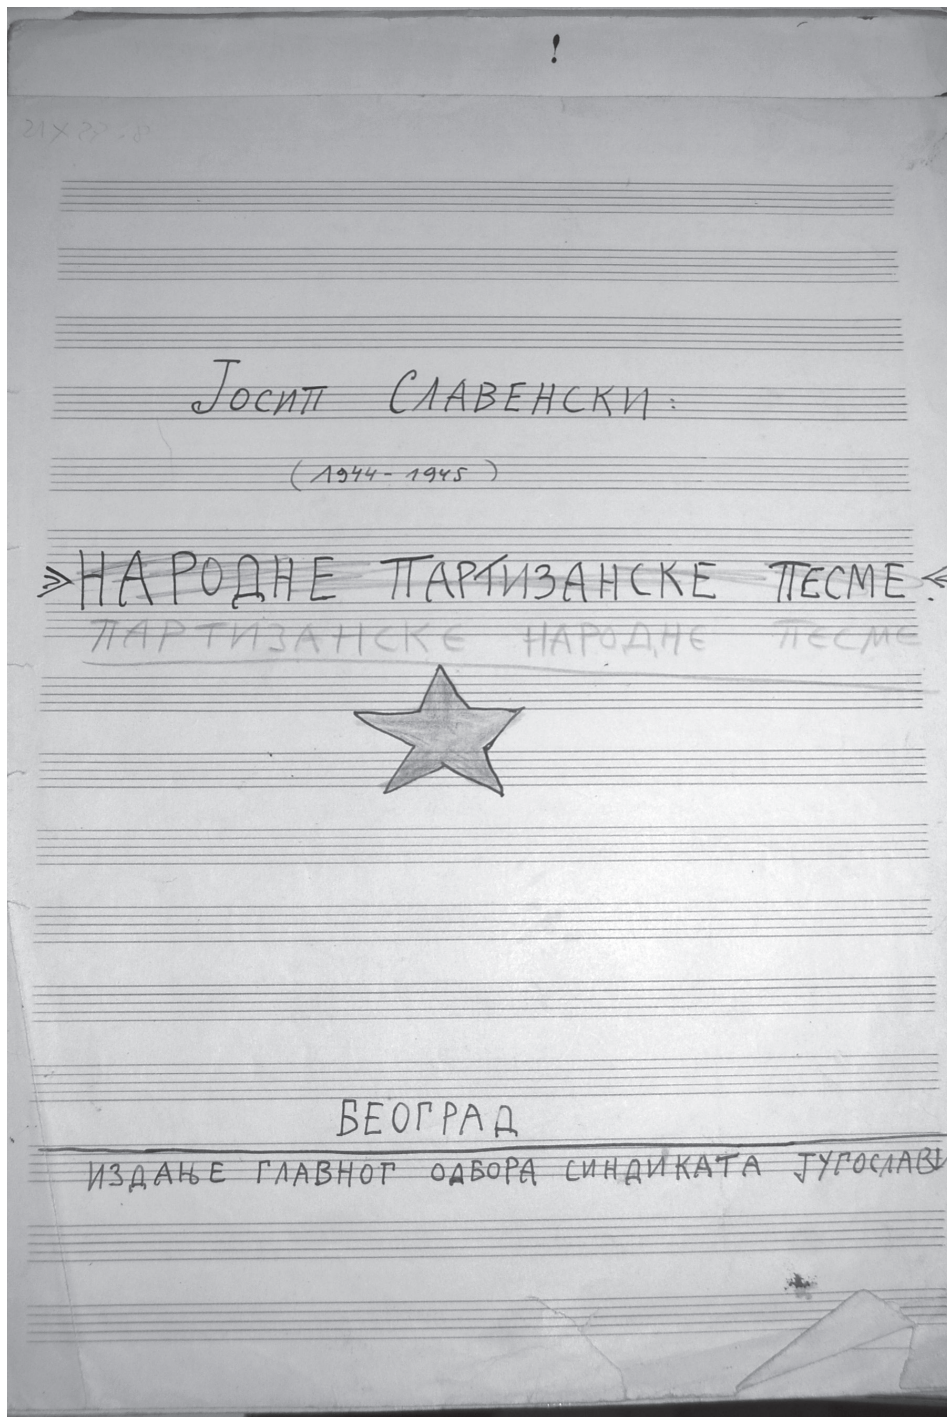 !
Јосип Славенски:
(1944-1945)
»НАРОДНЕ ПАРТИЗАНСКЕ ПЕСМЕ«
ПАРТИЗАНСКЕ НАРОДНЕ ПЕСМЕ
БЕОГРАД
ИЗДАЊЕ ГЛАВНОГ ОДБОРА СИНДИКАТА